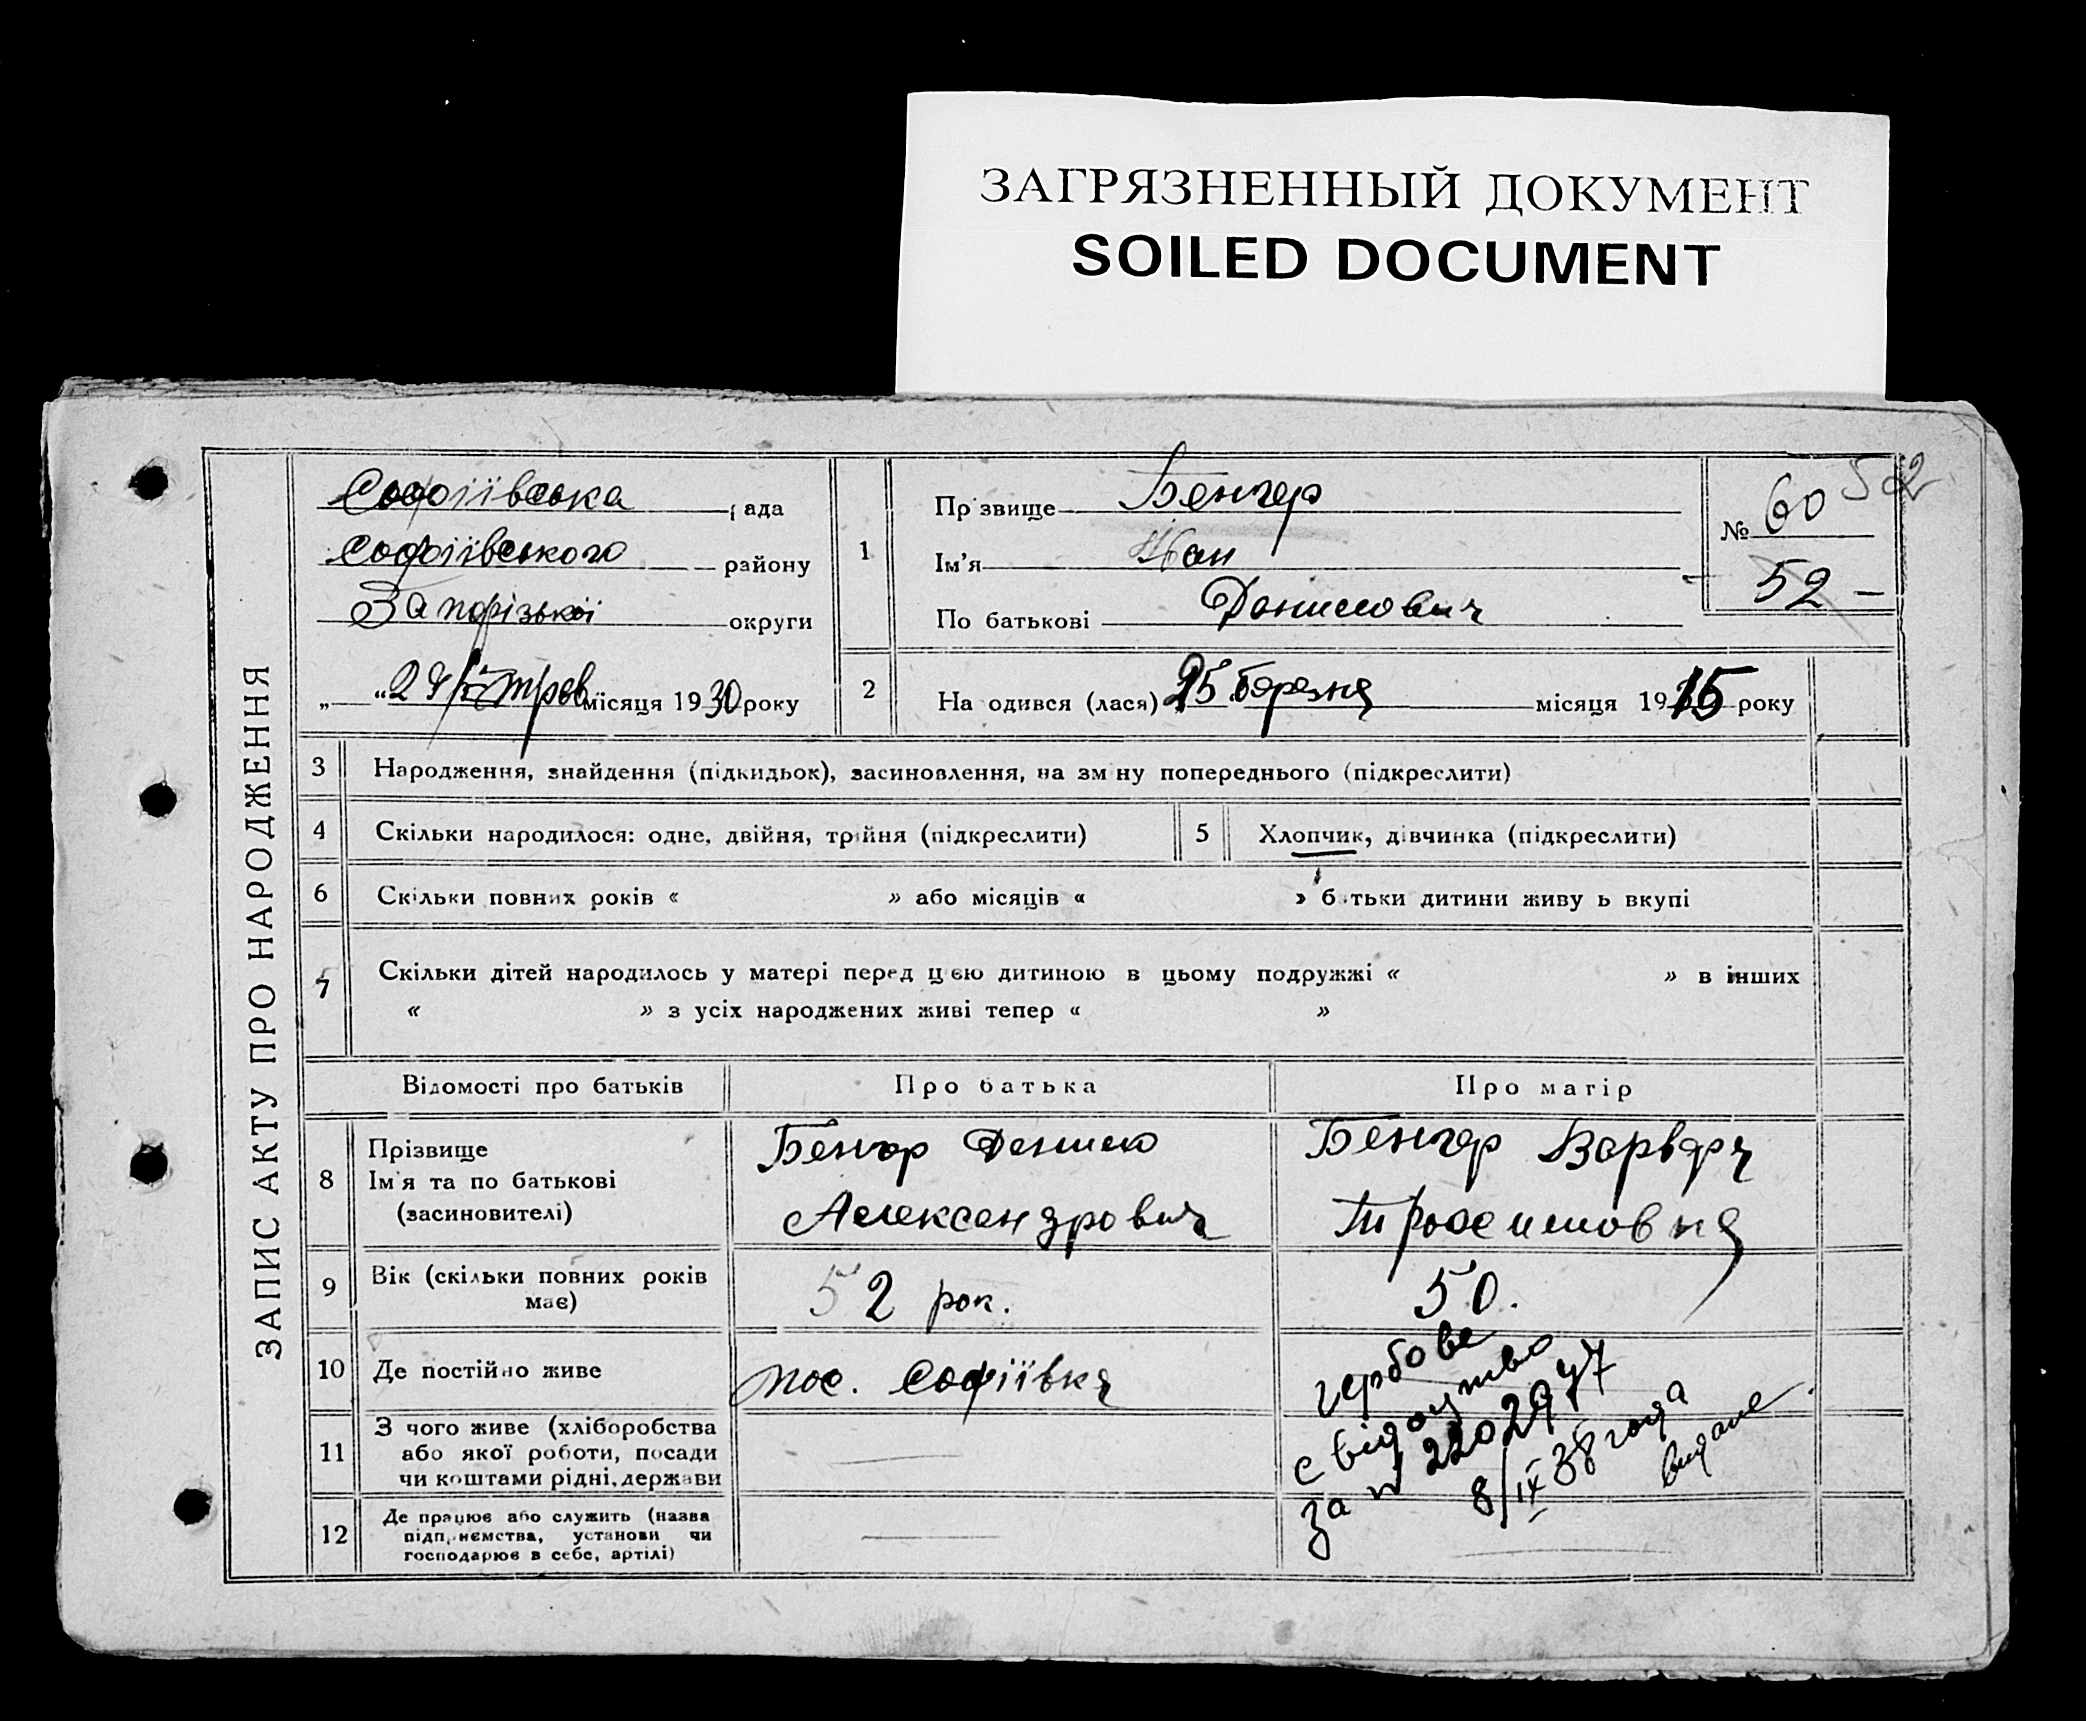 ЗАГРЯЗНЕННЫЙ ДОКУМЕНТ
SOILED DOCUMENT
ЗАПИС АКТУ ПРО НАРОДЖЕННЯ
Софіївська рада
Софіївського району
Запорізької округи
місяця 1930 року
1
Прізвище Бенгер
Ім'я Иван
По батькові Денисович
№ 60
52
52 –
2
На одився (лася) 25 березня місяця 1915 року
3 Народження, знайдення (підкидьок), засиновлення, на зм ну попереднього (підкреслити)
4 Скільки народилося: одне, двійня, трійня (підкреслити)
5 Хлопчик, дівчинка (підкреслити)
6 Скільки повних років « » або місяців « » батьки дитини живу ь вкупі
7 Скільки дітей народилось у матері перед цією дитиною в цьому подружжі « » в інших
« » з усіх народжених живі тепер « »
Відомості про батьків
Про батька
Про матір
8
Прізвище
Ім'я та по батькові
(засиновителі)
Бенгер Денис
Александрович
Бенгер Варвара
9
Вік (скільки повних років
має)
52 рок.
50.
10 Де постійно живе
пос. Софіївка
11
З чого живе (хліборобства
або якої роботи, посади
чи коштами рідні, держави
12
Де працює або служить (назва
підприємства, установи чи
господарює в себе, артілі)
гербове
свідоцтво
за №
8/IX 38 года
видане